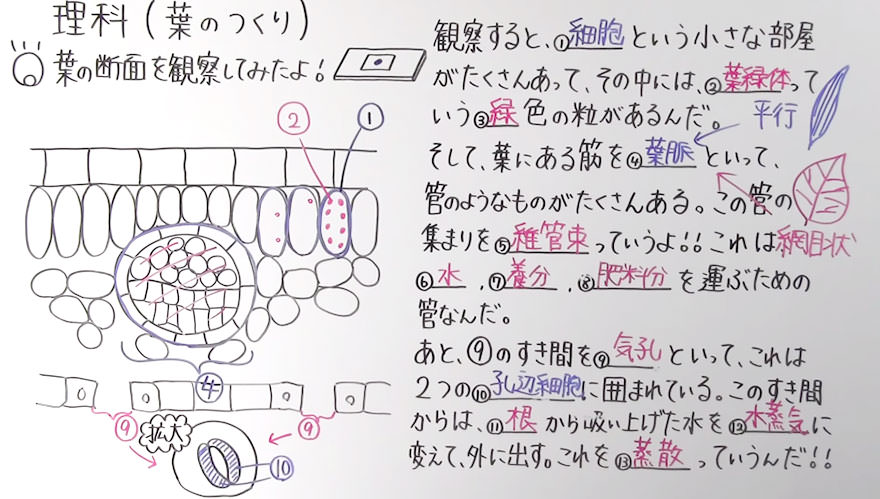 理科(葉のつくり)
葉の断面を観察してみたよ!
② ①
④
⑨ 拡大 ⑨
⑩
観察すると、①細胞という小さな部屋
がたくさんあって、その中には、②葉緑体って
いう③緑色の粒があるんだ。 平行
そして、葉にある筋を④葉脈といって、
管のようなものがたくさんある。この管の
集まりを⑤維管束っていうよ!!これは 網目状
⑥水、⑦養分、⑧肥料分を運ぶための
管なんだ。
あと、⑨のすき間を⑨気孔といって、これは
2つの⑩孔辺細胞に囲まれている。このすき間
からは、⑪根から吸い上げた水を⑫水蒸気に
変えて、外に出す。これを⑬蒸散っていうんだ!!